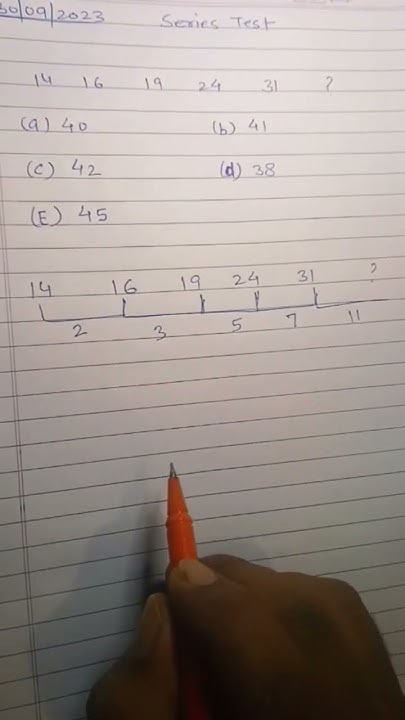 30/09/2023 Series Test
14 16 19 24 31 ?
(a) 40 (b) 41
(C) 42 (d) 38
(E) 45
14 16 19 24 31 ?
2 3 5 7 11